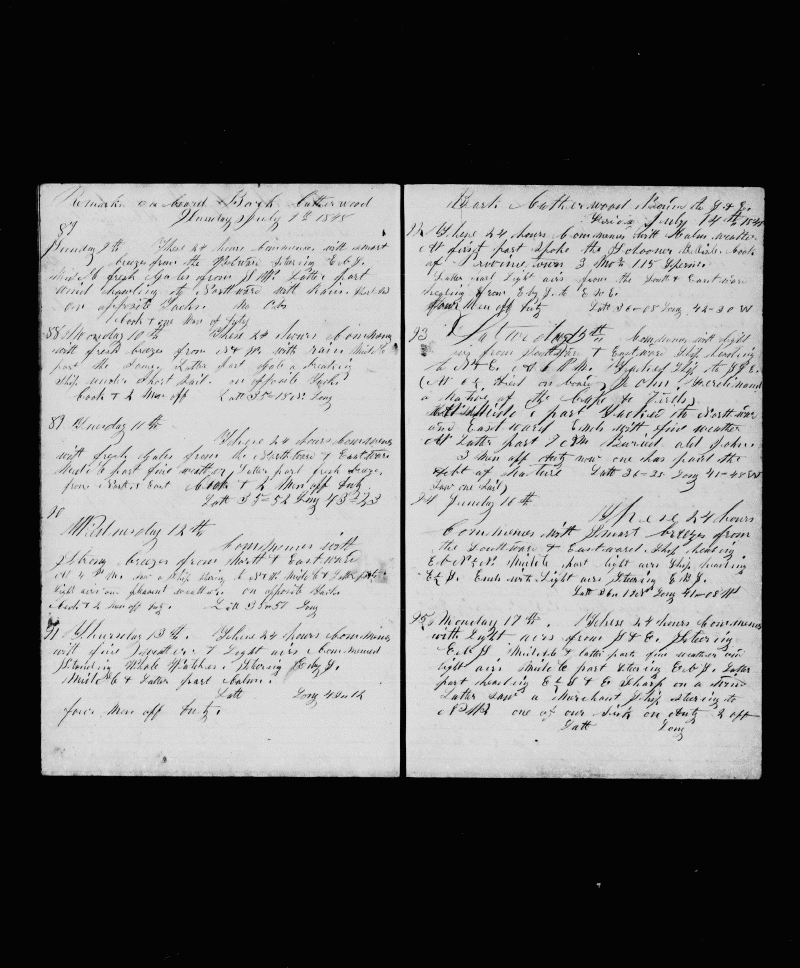 Remarks on board Bark Catherwood
Tuesday July 1848
87
Sunday 9th These 24 hours Commences with smart
breezes from the Westward Stering E b S.
Middle fresh Gales from S W. Latter part
wind to Northward with Rain
on opposite Tacks. No Obs
Cook & one Man of Duty
88 Monday 10th These 24 hours Commences
with fresh breezes from N & W. with rain Middle
part the Same. Latter part
Ship under Short Sail. on opposite Tacks
Cook & 2 Men off Latt 35
89 Tuesday 11th
These 24 hours Commences
with fresh Gales from the Northward & Eastward
Middle part fine weather, Latter part fresh breezes
from North & East Cook & 2 Men off Duty
Latt 35-52 Long 43-23
90
Wednesday 12th
Commences with
Strong breezes from North & Eastward
At 4 P M. saw a Ship Middle & Latter parts
Light airs and pleasant weather. on opposite Tacks
Cook & 2 men off Duty. Latt 35-57 Long
91 Thursday 13th. These 24 hours Commences
with fine weather & Light airs Commenced
Standing Whole Watches. Stering E b S.
Middle & Latter part Calm.
Latt Long
four Men off Duty.
Bark Catherwood
Friday July 14th 1848
92 These 24 hours Commences with Calm weather
At first part Spoke the Schooner
of Provincetown 3 Mos 115 Sperm
Latter part Light airs from the South & Eastward
heading from E by S. to E N E.
four Men off Duty Latt 36-05 Long 42-30 W
93 Saturday 15th Commences with light
airs from Southern & Eastward Ship heading
to N & E. At 1 P M. Tacked Ship to S S E.
(At 12 Died on board John Ferdinand
a Native of the Cape de Verds)
Middle part Tacked to Northward
and Eastward Ends with fine weather
At Latter part 8 A M Buried old John.
3 Men off Duty now one has paid the
debt of Nature Latt 36-25 Long 41-48 W
Saw one Sail)
94 Sunday 16th
These 24 hours
Commences with Smart breezes from
the Southward & Eastward Ship heading
Middle part light airs Ship heading
Ends with Light airs Stering E b S.
Latt 36 Long 41-08 W
95 Monday 17th. These 24 hours Commences
with Light airs from S & E. Stering
E b S Middle & latter parts fine weather and
light airs Middle part Stering E b S. Latter
part heading Sharp on a wind
Latter Saw a Merchant Ship Stering to
one of our Sick on Duty 2 off
Latt Long